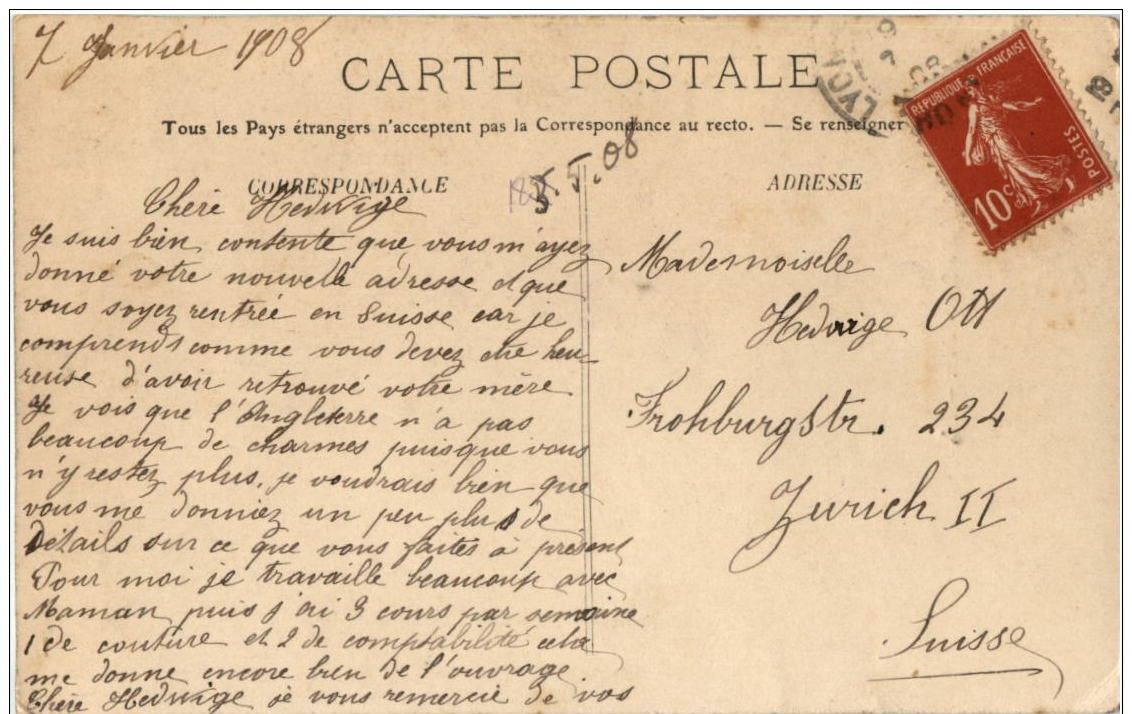 7 Janvier 1908
CARTE POSTALE
Tous les Pays étrangers n'acceptent pas la Correspondance au recto. — Se renseigner
CORRESPONDANCE
ADRESSE
5.08
LYON
REPUBLIQUE FRANÇAISE
POSTES
10c
Chère Hedwige
Je suis bien contente que vous m'ayez
donné votre nouvelle adresse et que
vous soyez rentrée en Suisse car je
comprends comme vous devez être heu-
reuse d'avoir retrouvé votre mère
Je vois que l'Angleterre n'a pas
beaucoup de charmes puisque vous
n'y restez plus, je voudrais bien que
vous me donniez un peu plus de
Détails sur ce que vous faites à présent
Pour moi je travaille beaucoup avec
Maman puis j'ai 3 cours par semaine
1 de couture et 2 de comptabilité cela
me donne encore bien de l'ouvrage
Chère Hedwige je vous remercie de vos
Mademoiselle
Hedwige Ott
Frohburgstr. 234
Zurich II
Suisse